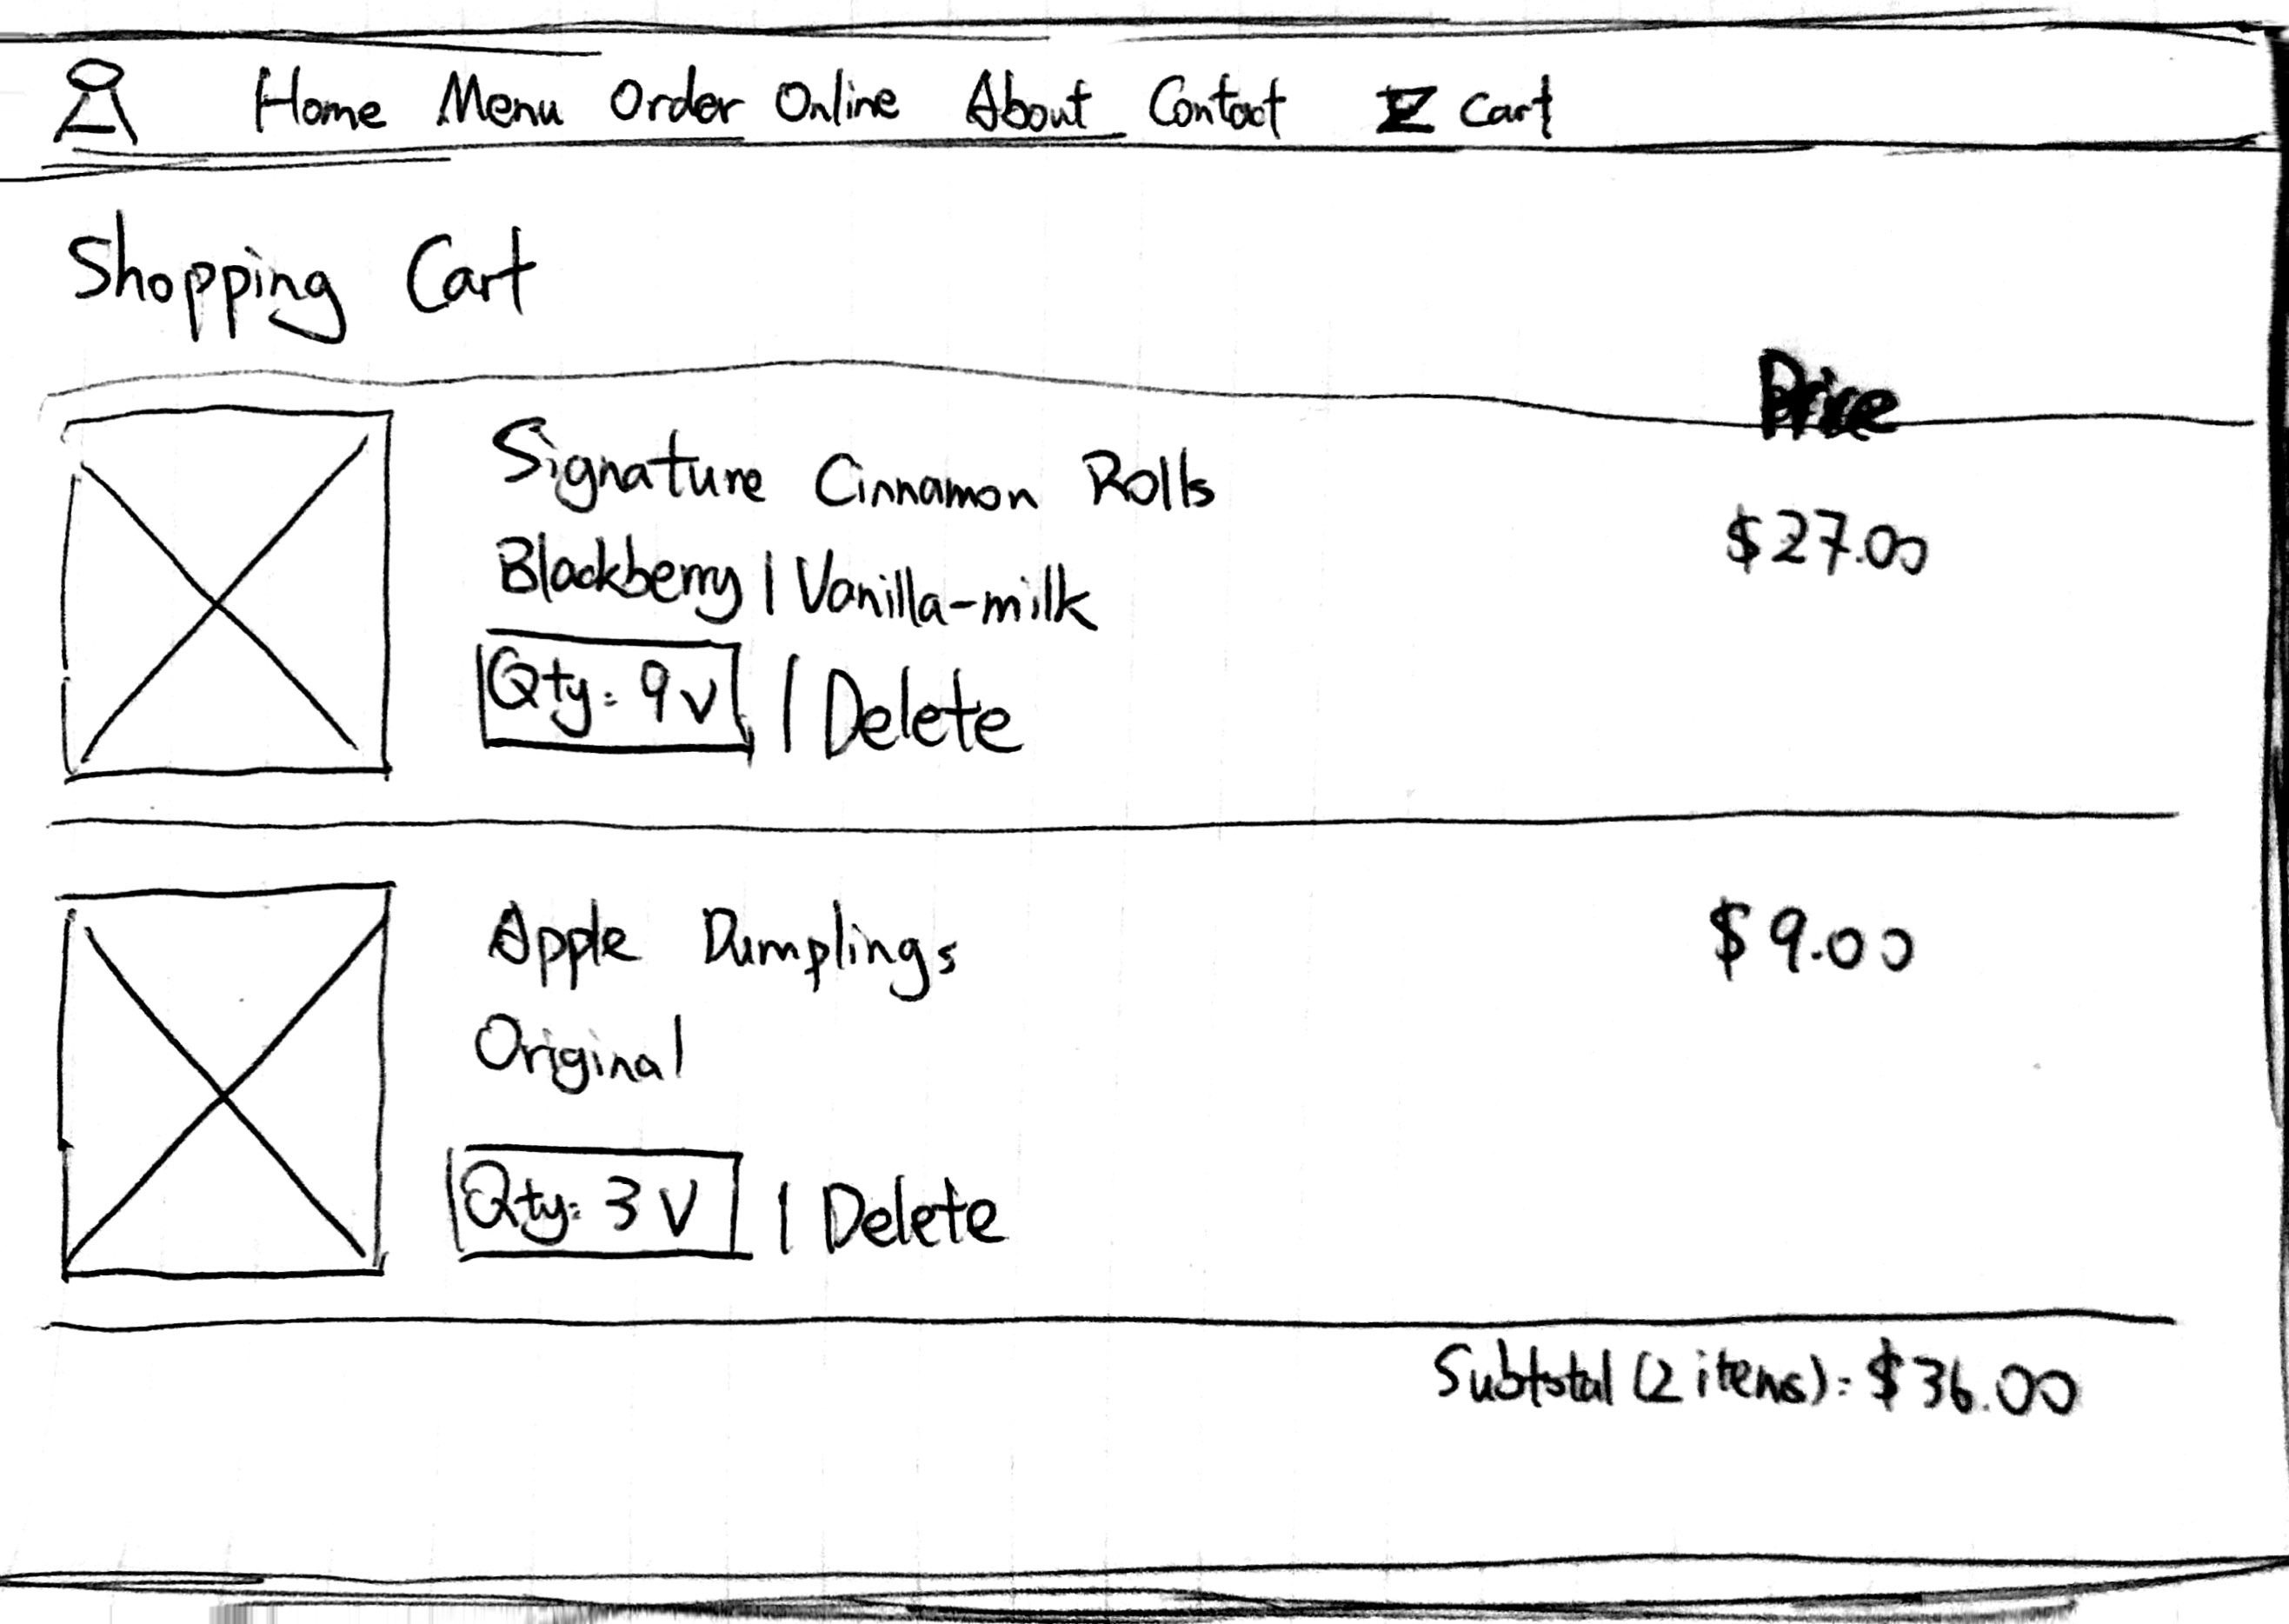 Home Menu Order Online About Contact Cart
Shopping Cart
Price
Signature Cinnamon Rolls
$27.00
Blackberry | Vanilla-milk
Qty: 9 v | Delete
Apple Dumplings
$9.00
Original
Qty: 3 v | Delete
Subtotal (2 items): $36.00